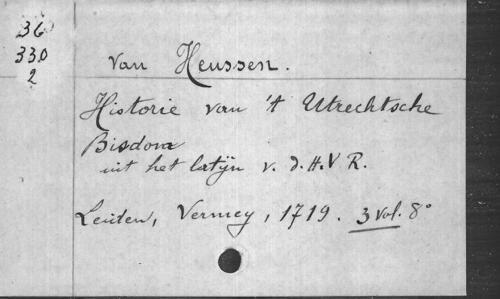 36
330
2
van Heussen.
Historie van 't Utrechtsche
Bisdom
uit het latijn v. d. H. V R.
Leiden, Vermey, 1719. 3 vol. 8°